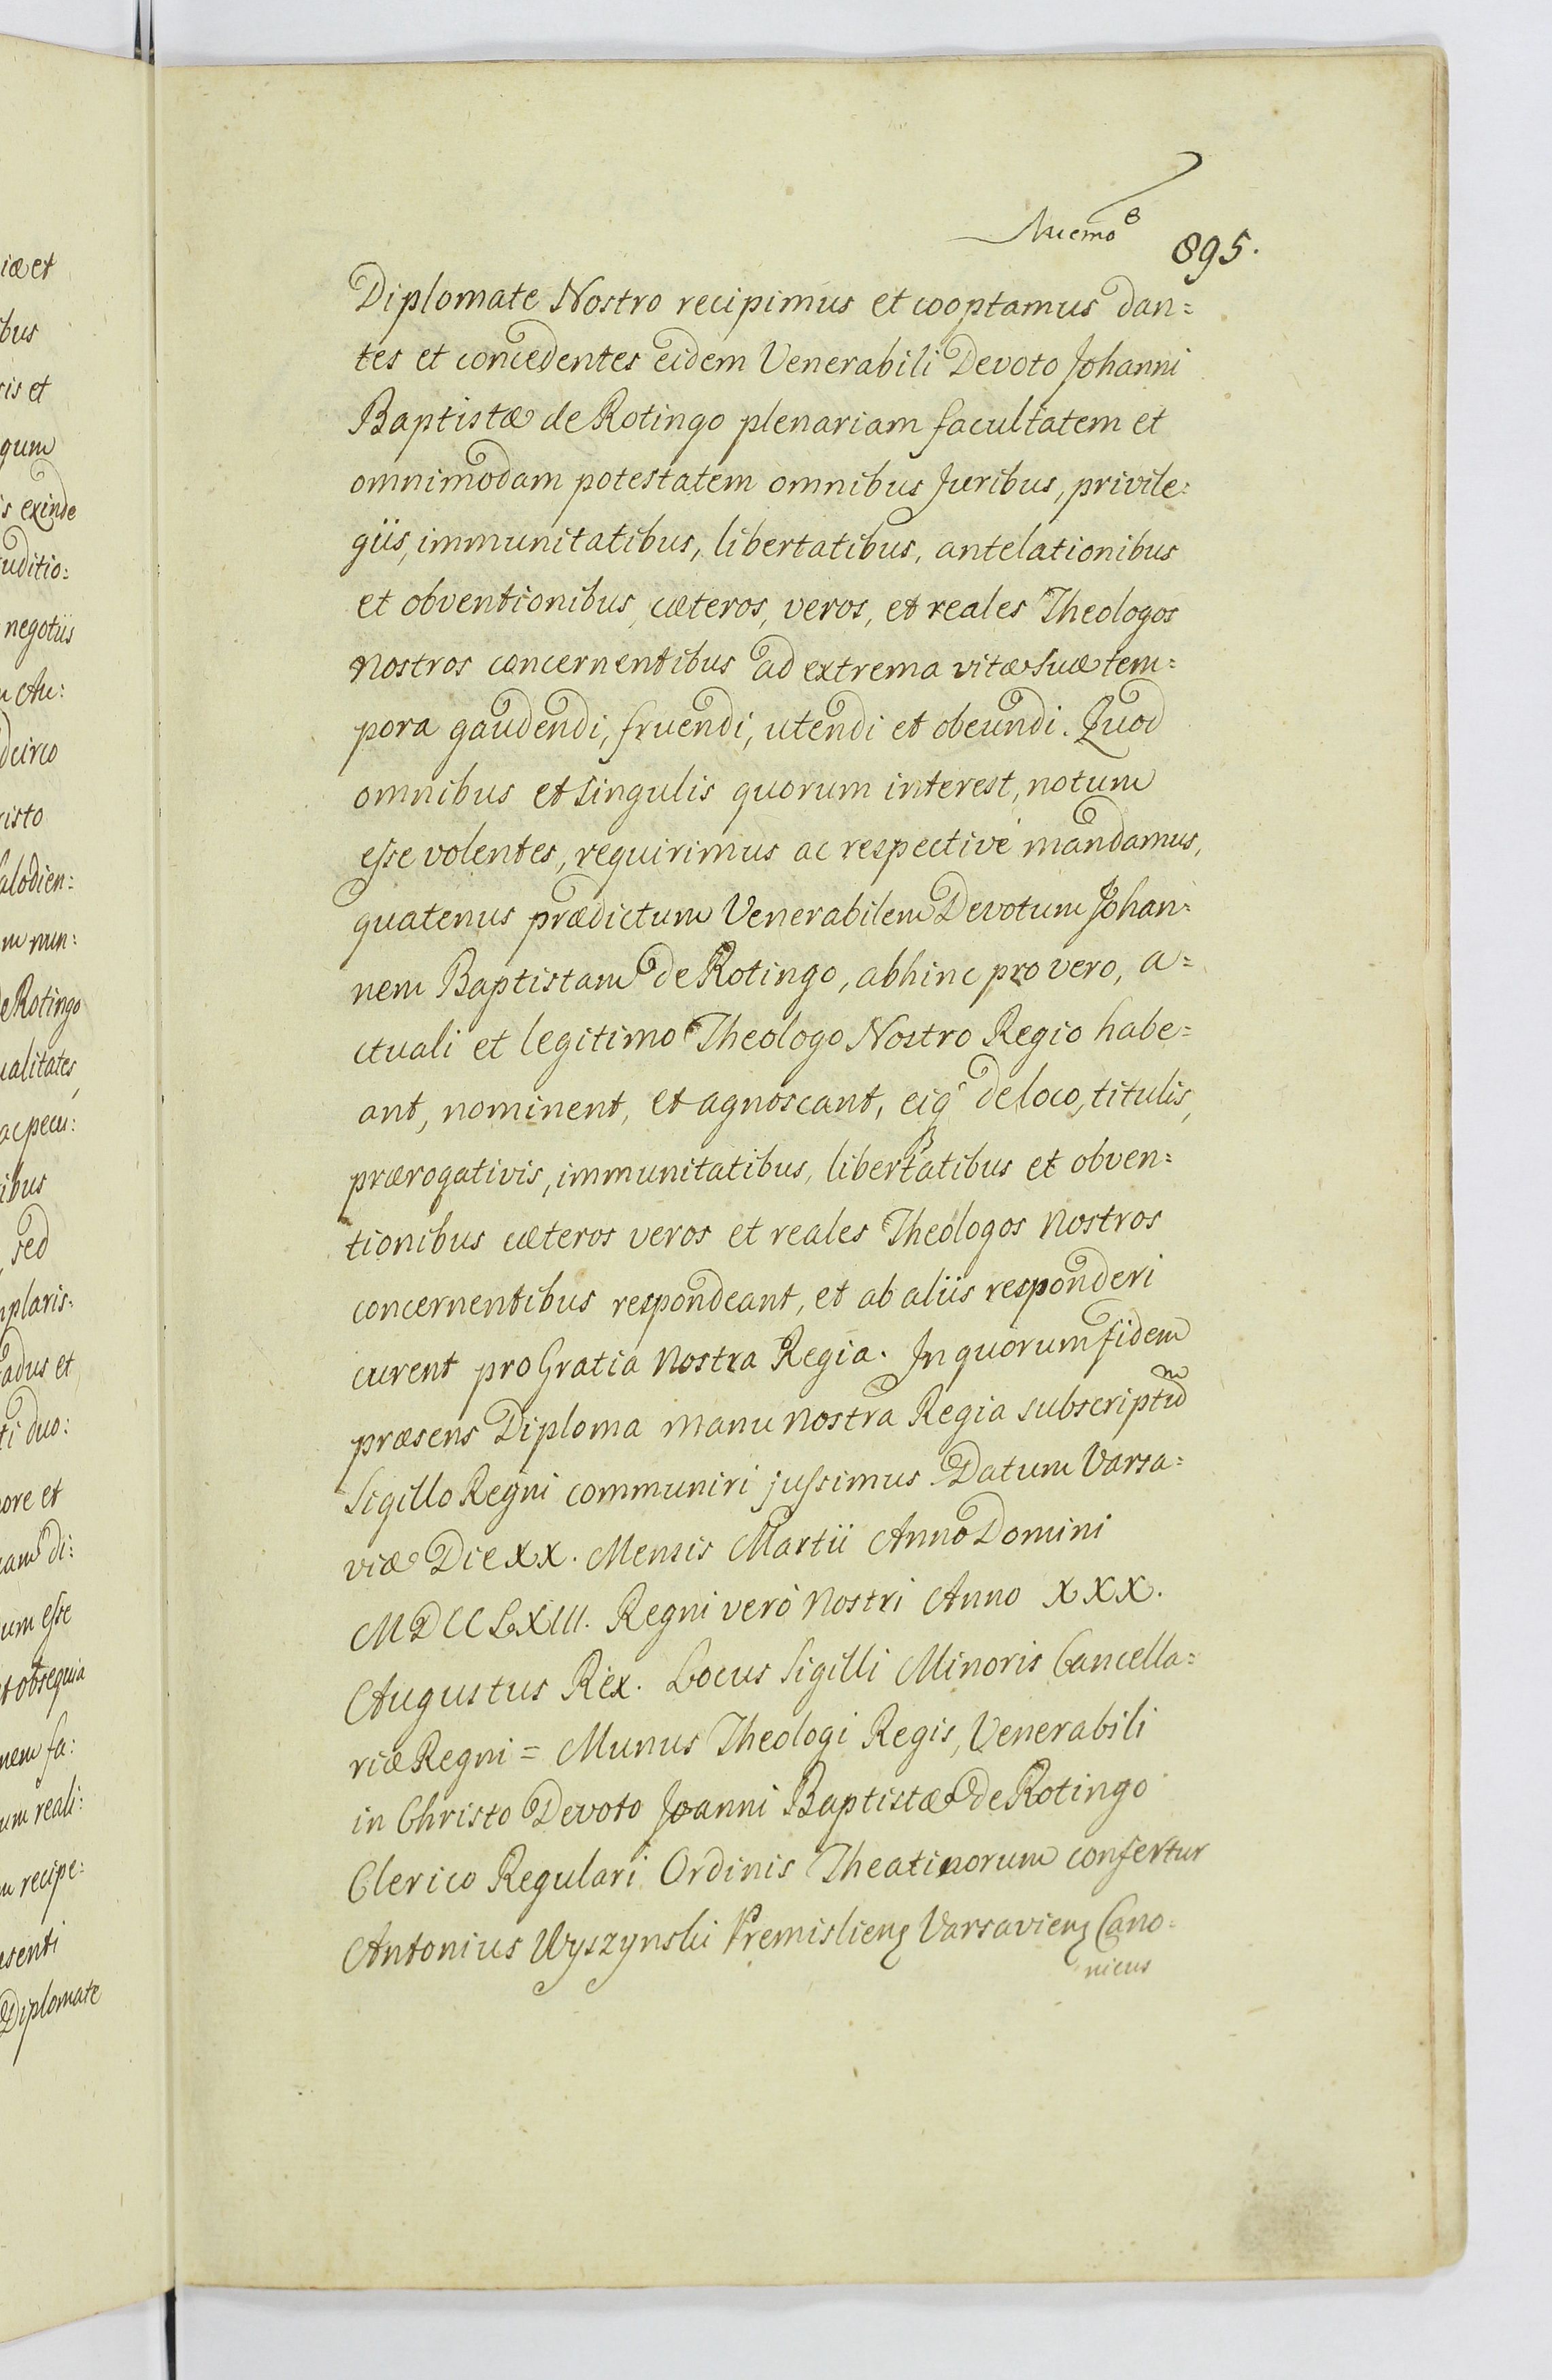 895.
Diplomate Nostro recipimus et cooptamus dan=
tes et concedentes eidem Venerabili Devoto Johanni
Baptistæ de Rotingo plenariam facultatem et
omnimodam potestatem omnibus Juribus, privile=
giis, immunitatibus, libertatibus, antelationibus
et obventionibus, cæteros, veros, et reales Theologos
Nostros concernentibus ad extrema vitæ suæ tem=
pora gaudendi, fruendi, utendi et obeundi. Quod
omnibus et singulis quorum interest, notum
esse volentes, requirimus ac respectivè mandamus,
quatenus prædictum Venerabilem Devotum Johan=
nem Baptistam de Rotingo, abhinc pro vero, a=
ctuali et legitimo Theologo Nostro Regio habe=
ant, nominent, et agnoscant, eiq de loco, titulis,
prærogativis, immunitatibus, libertatibus et obven=
tionibus cæteros veros et reales Theologos Nostros
concernentibus respondeant, et ab aliis responderi
curent pro Gratia Nostra Regia. In quorum fidem
præsens Diploma manu Nostra Regia subscriptum
Sigillo Regni communiri jussimus. Datum Varsa=
viæ Die XX. Mensis Martii Anno Domini
MDCCLXIII. Regni verò Nostri Anno XXX.
Augustus Rex. Locus Sigilli Minoris Cancella=
riæ Regni = Munus Theologi Regis, Venerabili
in Christo Devoto Joanni Baptistæ de Rotingo
Clerico Regulari Ordinis Theatinorum confertur
Antonius Wyszynski Premislien Varsavien Cano=
nicus
iæ et
bus
ris et
gum
s exinde
uditio:
negotiis
Au:
dcirco
risto
alodien:
m nun:
de Rotingo
ualitates,
ac pecu:
ibus
, sed
mplaris:
adus et
ti duo:
ore et
am di:
um esse
et obsequia
nem fa:
um reali:
m recipe:
senti
Diplomate